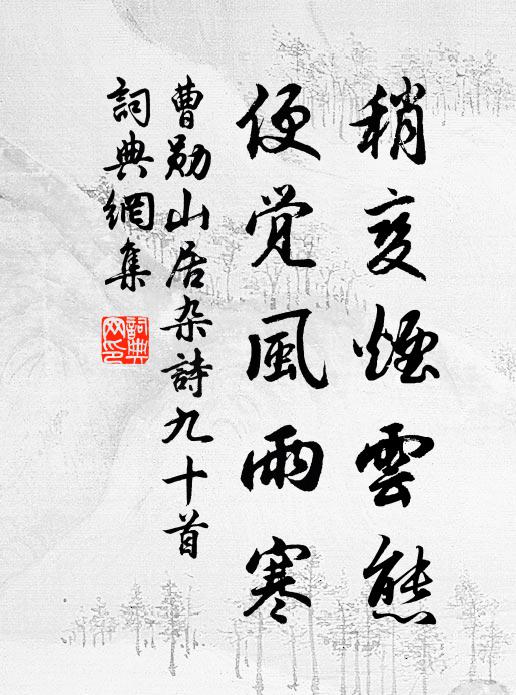 稍变煙雲態
便觉風雨寒
曹勋山居杂詩九十首
詞典網集
詞典网印